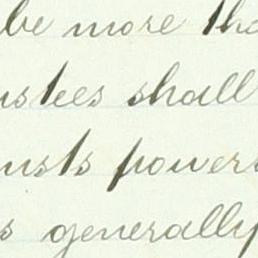 be more tha
ustees shall
usts powers
s generally